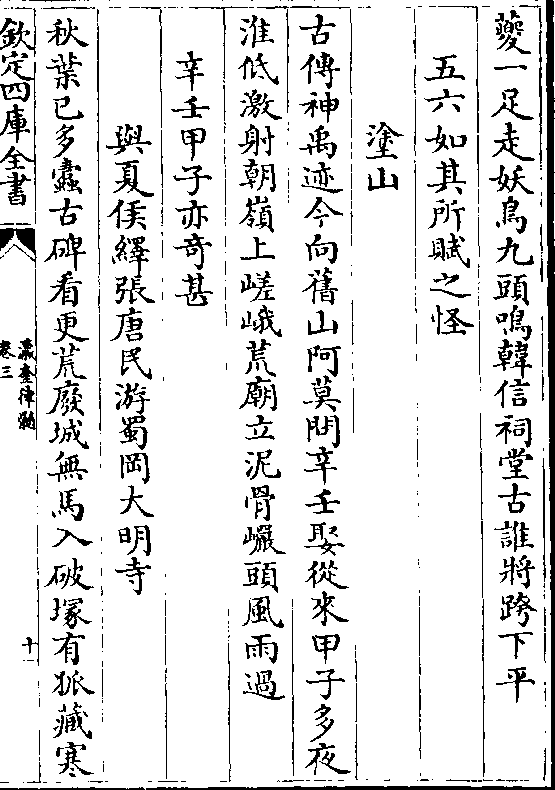 夔一足走妖鳥九頭鳴韓信祠堂古誰將跨下平
五六如其所賦之怪
塗山
古傳神禹迹今向舊山阿莫問辛壬娶從來甲子多夜
淮低激射朝嶺上嵯峨荒廟立泥骨巗頭風雨過
辛壬甲子亦奇甚
與夏侯繹張唐民游蜀岡大明寺
秋葉已多蠧古碑看更荒廢城無馬入破塚有狐藏寒
欽定四庫全書
瀛奎律髓
卷三
十一